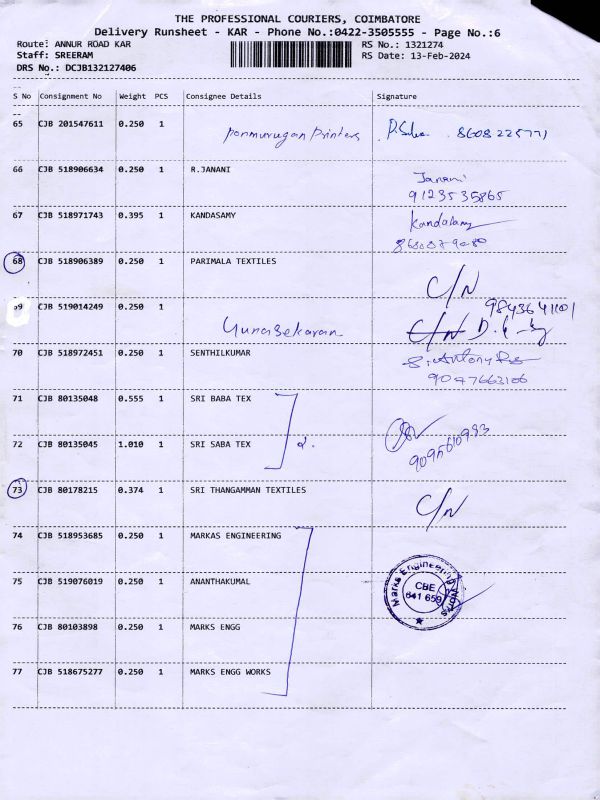 THE PROFESSIONAL COURIERS, COIMBATORE
Delivery Runsheet - KAR - Phone No.:0422-3505555 - Page No.:6
Route: ANNUR ROAD KAR RS No.: 1321274
Staff: SREERAM RS Date: 13-Feb-2024
DRS No.: DCJB132127406
S No Consignment No Weight PCS Consignee Details Signature
65 CJB 201547611 0.250 1 Ponmurugan Printers 8608225771
66 CJB 518906634 0.250 1 R.JANANI Janani
9123535865
67 CJB 518971743 0.395 1 KANDASAMY Kandasamy
68 CJB 518906389 0.250 1 PARIMALA TEXTILES C/N
69 CJB 519014249 0.250 1 Gunasekaran C/N
9843641101
70 CJB 518972451 0.250 1 SENTHILKUMAR S. Antony
9047663106
71 CJB 80135048 0.555 1 SRI BABA TEX
72 CJB 80135045 1.010 1 SRI SABA TEX 2.
73 CJB 80178215 0.374 1 SRI THANGAMMAN TEXTILES C/N
74 CJB 518953685 0.250 1 MARKAS ENGINEERING
75 CJB 519076019 0.250 1 ANANTHAKUMAL
Marks Engineering Works
CBE
641 659
76 CJB 80103898 0.250 1 MARKS ENGG
77 CJB 518675277 0.250 1 MARKS ENGG WORKS